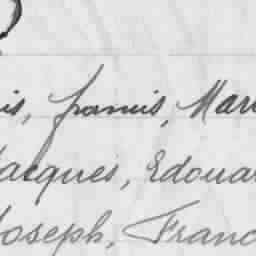 is, francis, Mari
Jacques, Edoua
Joseph, Franc